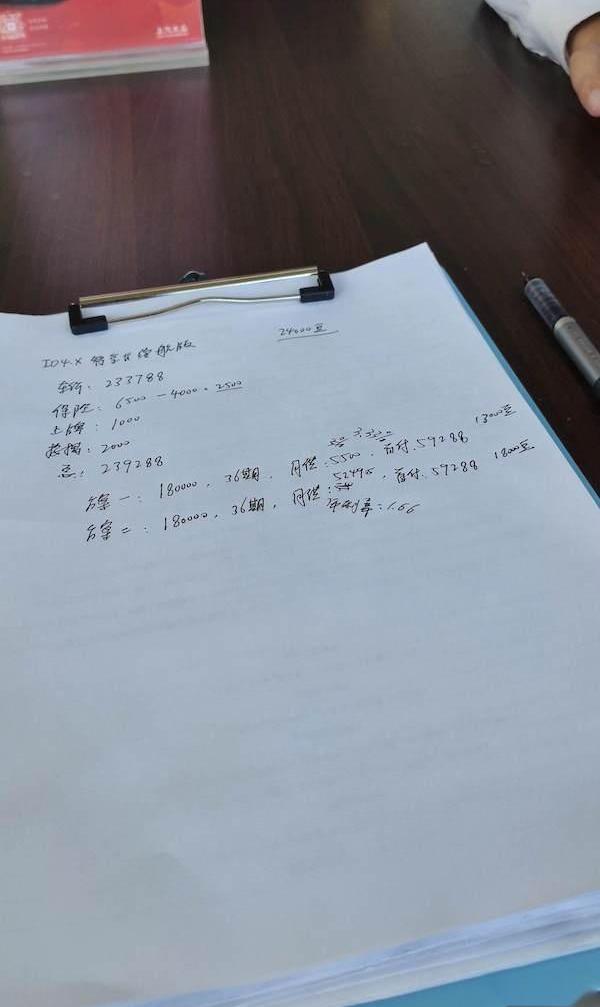 24000豆
ID4.X 智享长续航版
车价: 233788
保险: 6500 - 4000 = 2500
上牌: 1000
按揭: 2000
总: 239288
方案一: 180000, 36期, 月供: 5500, 首付: 59288 13000豆
方案二: 180000, 36期, 月供: 5249.5, 首付: 59288 18000豆
年利率: 1.66